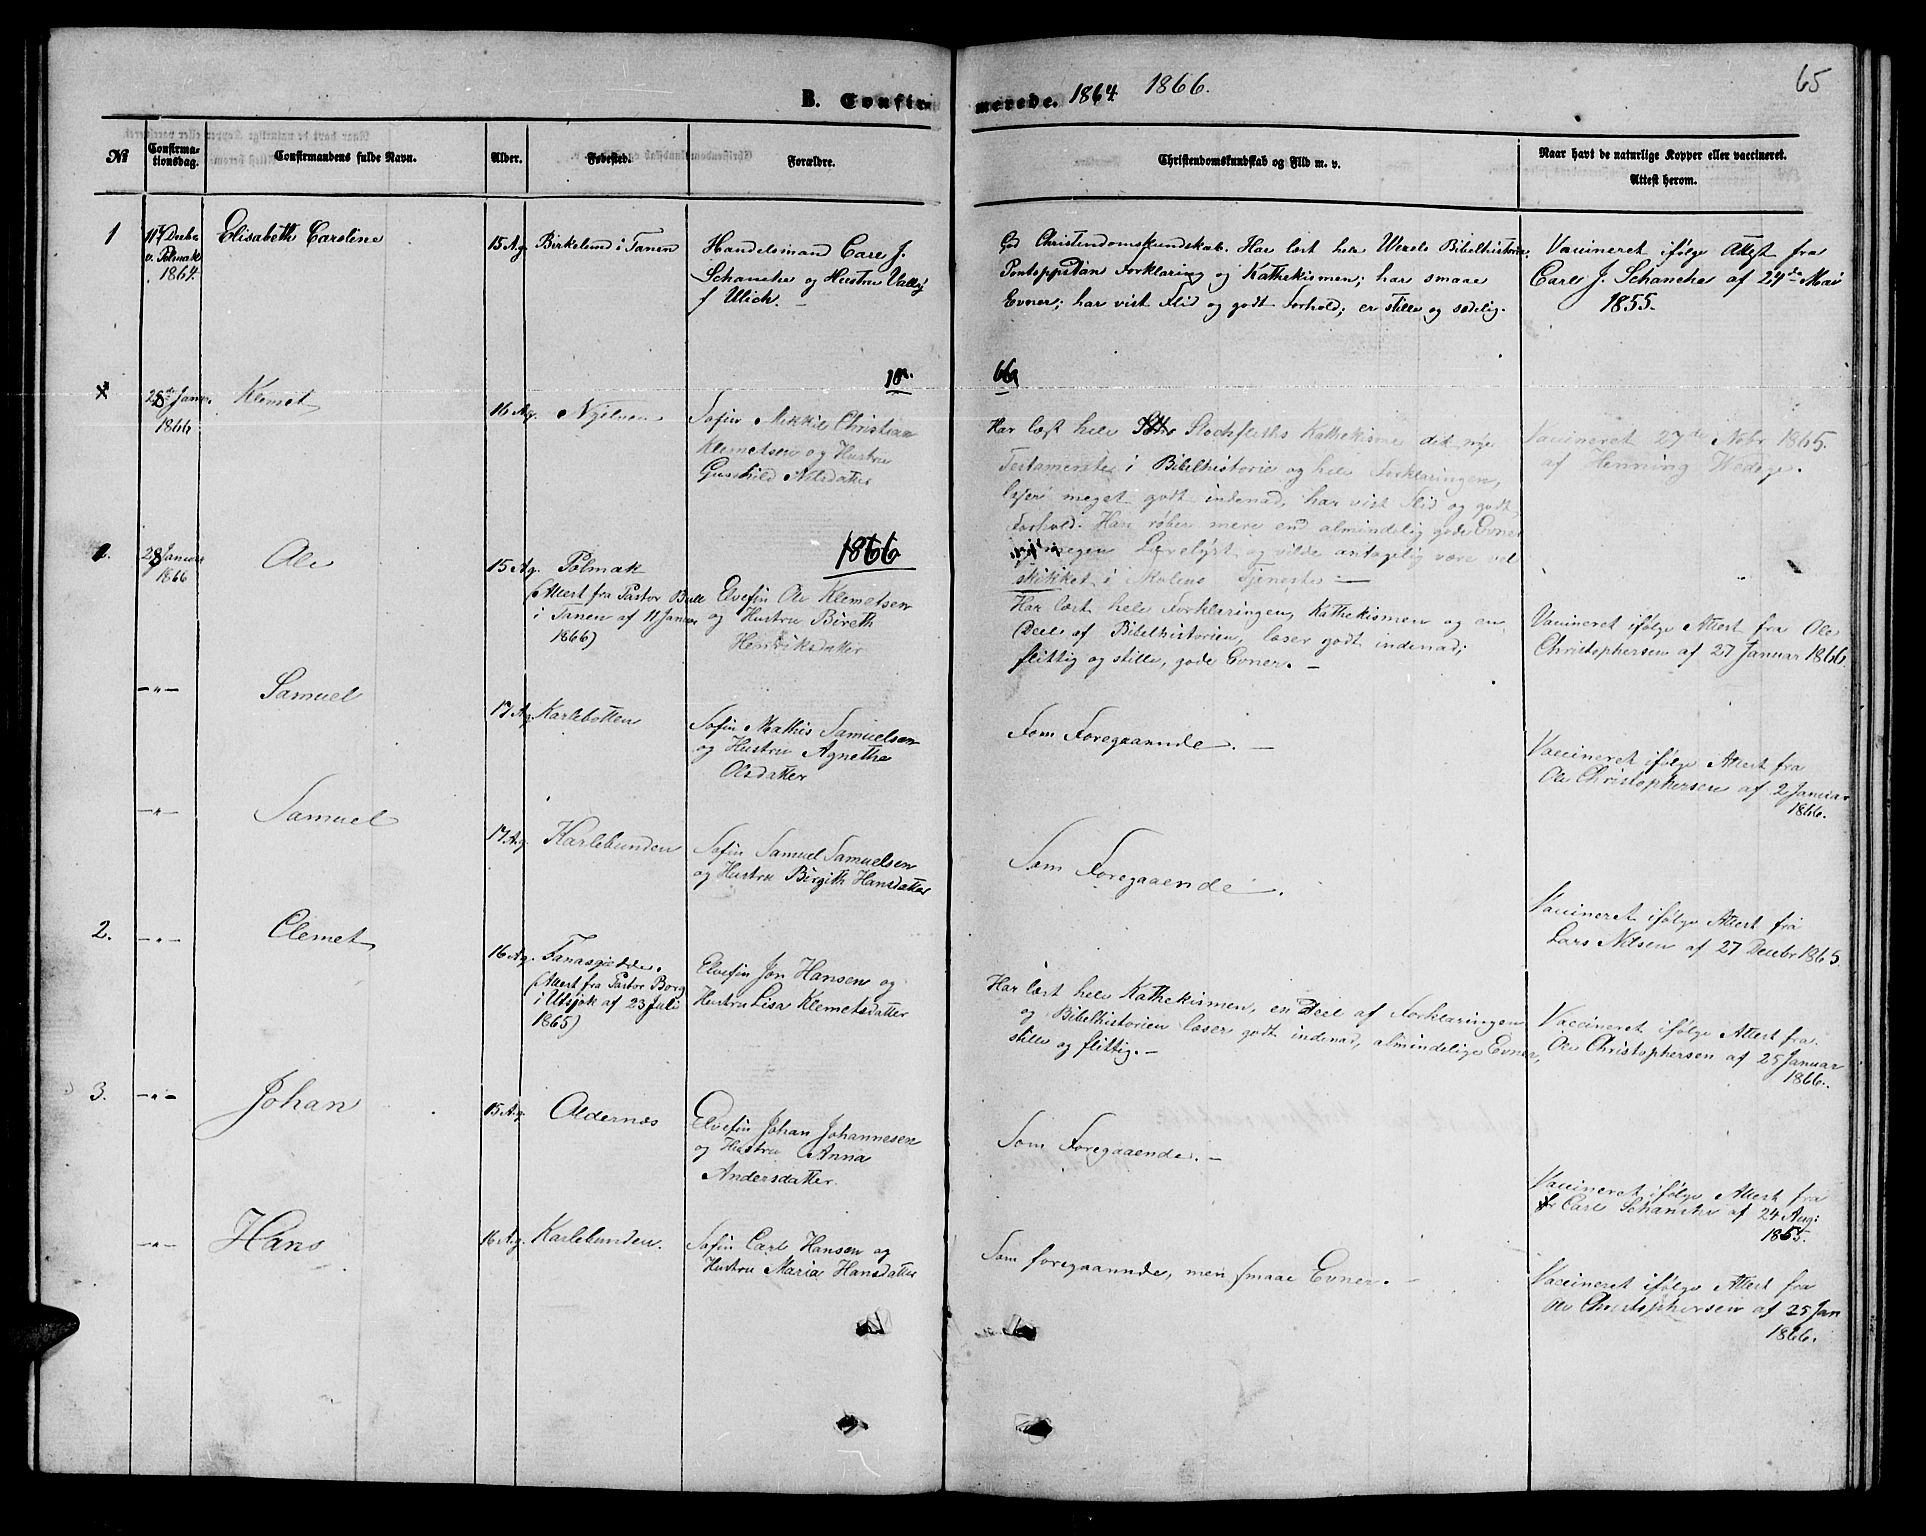 65
B. Confirmerede. 1864. 1866.
№
Confirmationsdag.
Confirmandens fulde Navn.
Alder.
Fødested.
Forældre.
Christendomskundskab og Flid m. v.
Naar havt de naturlige Kopper eller vaccineret.
Attest herom.
1
Decbr
v. Polmak
1864.
Elisabeth Caroline
15 Ag.
Birkelund i Tanen
Handelsmand Carl J.
Schanche og Hustru
f Ulich. —
God Christendomskundskab. Har læst hele Wexels Bibelhistorie,
Pontoppidan Forklaring og Kathekismen; har smaae
Evner; har vist Flid og godt Forhold; er stille og sædelig.
Vaccineret ifølge Attest fra
Carl J. Schanche af 24de Mai
1855.
28de Januar
1866
Klemet
16 Ag.
Nyelven
Søfin Mikkil Christian
Klemetsen og Hustru
Gunhild Nilsdatter
Har læst hele Stockfleths Kathekisme det nye
Testamente i Bibelhistorie og hele Forklaringen,
læser meget godt indenad, har vist Flid og godt
Forhold. Han røber mere end almindelig gode Evner
megen Lærelyst og vilde antagelig være vel
skikket i Skolens Tjeneste —
Vaccineret 27de Novbr 1865.
af Henning Wedege.
1866
1.
28 Januar
1866
Ole
15 Ag.
Polmak
(Attest fra Pastor Bull
i Tanen af 11 Januar
1866)
Elvefin Ole Klemetsen
og Hustru Bireth
Henriksdatter
Har læst hele Forklaringen, Kathekismen og en
Deel af Bibelhistorien, læser godt indenad;
flittig og stille, gode Evner. —
Vaccineret ifølge Attest fra Ole
Christophersen af 27 Januar 1866.
— " —
Samuel
17 Ag
Karlebotten
Søfin Mathis Samuelsen
og Hustru Agnethe
Olsdatter
Som Foregaannde. —
Vaccineret ifølge Attest fra
Ole Christophersen af 2 Januar
1866.
— " —
Samuel
17 Ag.
Karlebunden
Søfin Samuel Samuelsen
og Hustru Birgith Hansdatter
Som Foregaaende.
Vaccineret ifølge Attest frå
Lars Nilsen af 27 Decebr 1865.
2.
— " —
Clemet
16 Ag.
(Attest fra Pastor Borg
i Utsjok af 23 Juli
1865)
Elvefin Jon Hansen og
Hustru Lisa Klemetsdatter
Har læst hele Kathekismen, en Deel af Forklaringen
og Bibelhistorien læser godt indenad, almindelige Evner,
stille og flittig. —
Vaccineret ifølge Attest fra
Ole Christophersen af 25 Januar
1866.
3.
— " —
Johan
15 Ag.
Aldernæs
Elvefin Johan Johannesen
og Hustru Anna
Andersdatter.
Som Foregaaende. —
Vaccineret ifølge Attest fra
Carl Schanche af 24 Aug:
1855.
— " —
Hans
16 Ag.
Karlebunden.
Søfin Carl Hansen og
Hustru Maria Hansdatter
Som foregaannde, men smaae Evner. —
Vaccineret ifølge Attest fra
Ole Christophersen af 25 Jan
1866.